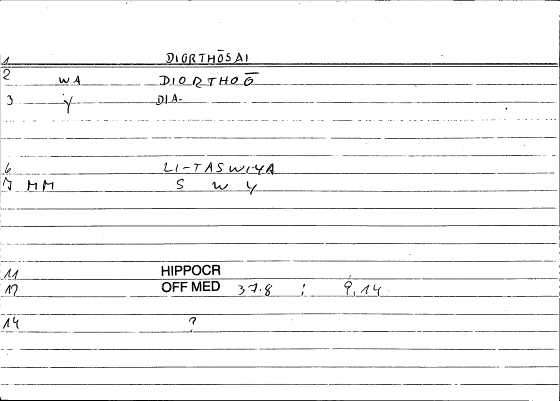 1 DIORTHŌSAI
2 WA DIORTHOŌ
3 Y DIA-
6 LI-TASWIYA
7 MM S W Y
11 HIPPOCR
12 OFF MED 37.8 ; 9,14
14 ?